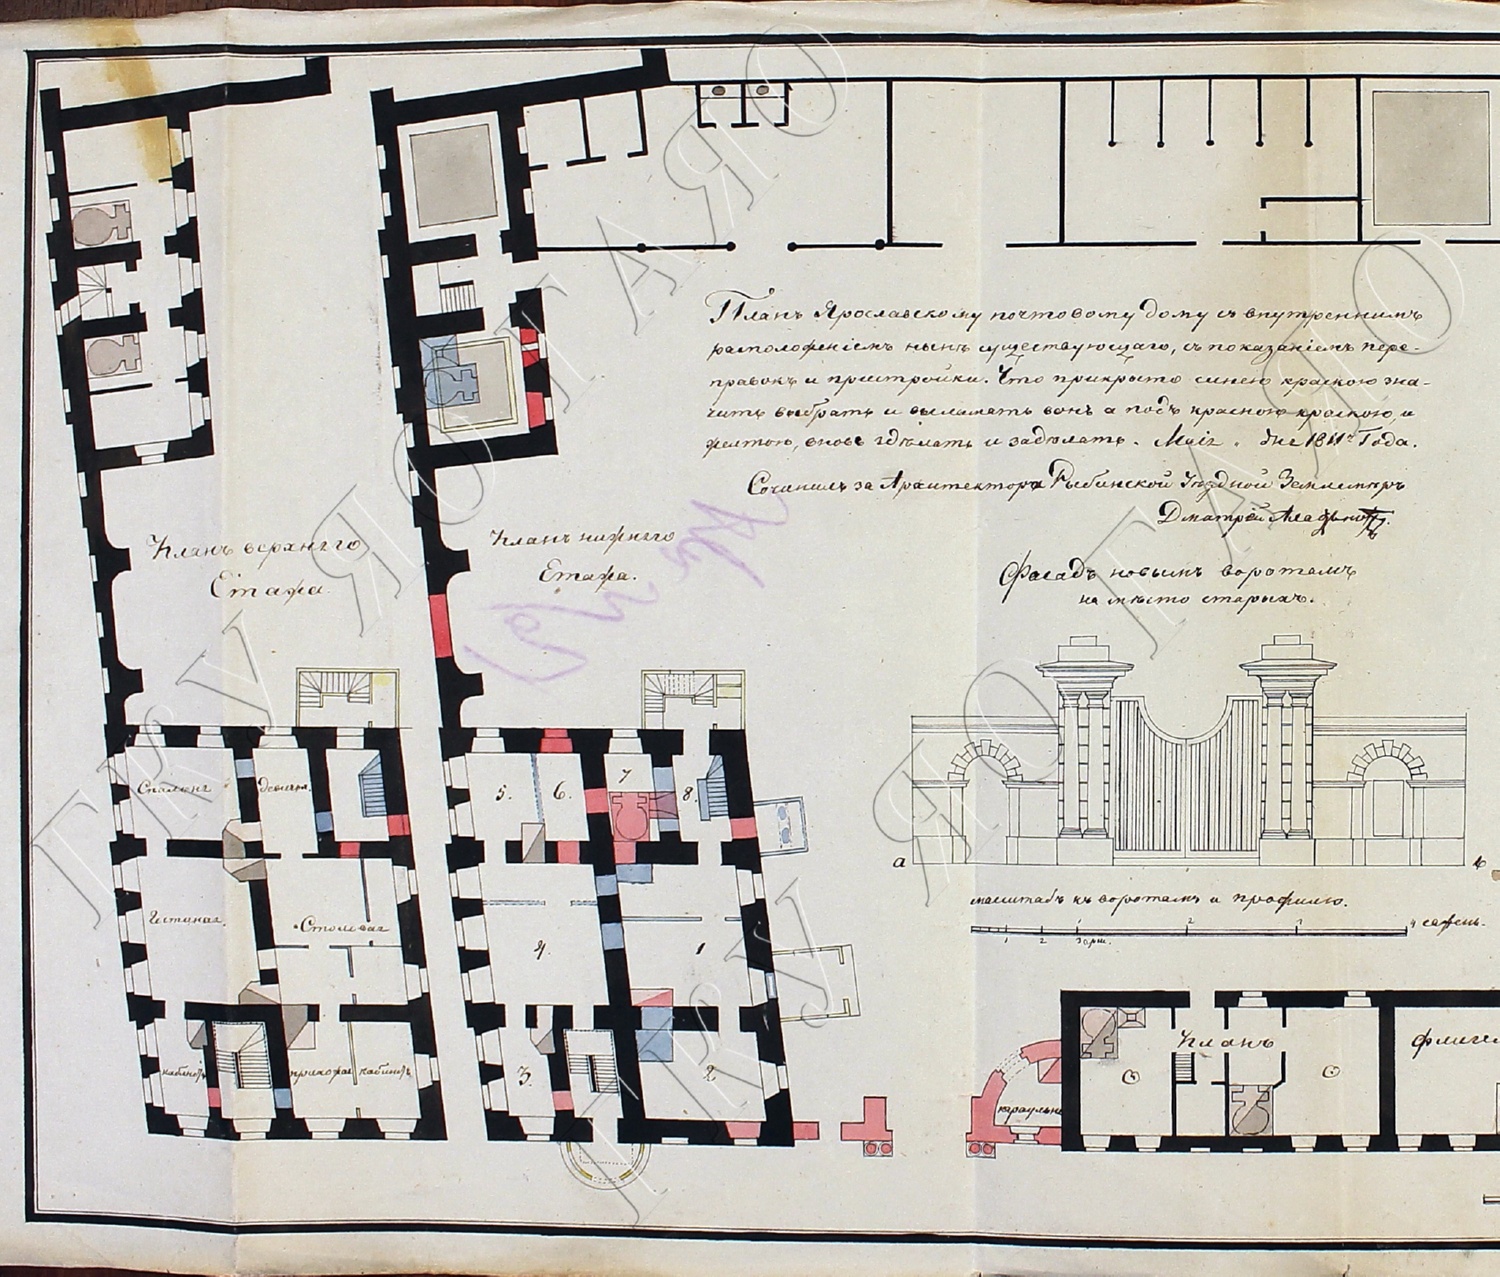 Планъ Ярославскому почтовому дому съ внутреннимъ
расположеніемъ нынѣ существующаго, съ показаніемъ пере-
правокъ и пристройки. Что прикрыто синею краскою зна-
читъ выбрать и выломать вонъ а подъ красною краскою, и
желтою, вновь здѣлать и задѣлать. Маія дня 1811го Года.
Сочинилъ за Архитектора Рыбинской Уѣздной Землемѣръ
Дмитрей
Планъ верхнего
Етажа.
Планъ нижнего
Етажа.
Фасадъ новымъ воротамъ
на мѣсто старыхъ.
а
в
масштабъ къ воротамъ и профилю.
1 2 3 арш. 1 2 3 4 сажень.
Спальня
Девичья.
Гостиная.
Столовая
кабинетъ
прихожая
кабинетъ
5.
6.
7
8.
4.
1
3.
2
караульня
Планъ
флиге
ГКУ ЯО ГАЯО
ГКУ ЯО ГАЯО
ГКУ ЯО ГАЯО